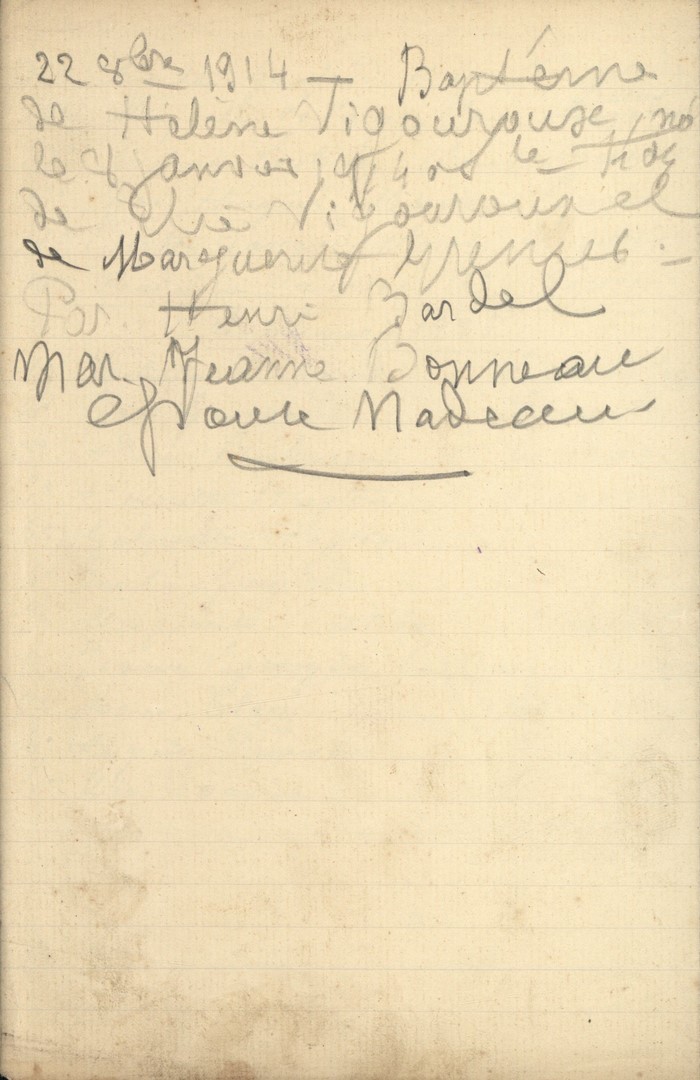 22 8bre 1914 — Baptême
de Hélène Vigouroux, né
le 8 janvier 1914
de Vigouroux et
de Marguerite
Par Henri Bardel
Mar. Jeanne Bonneau
Epouse Nadeau